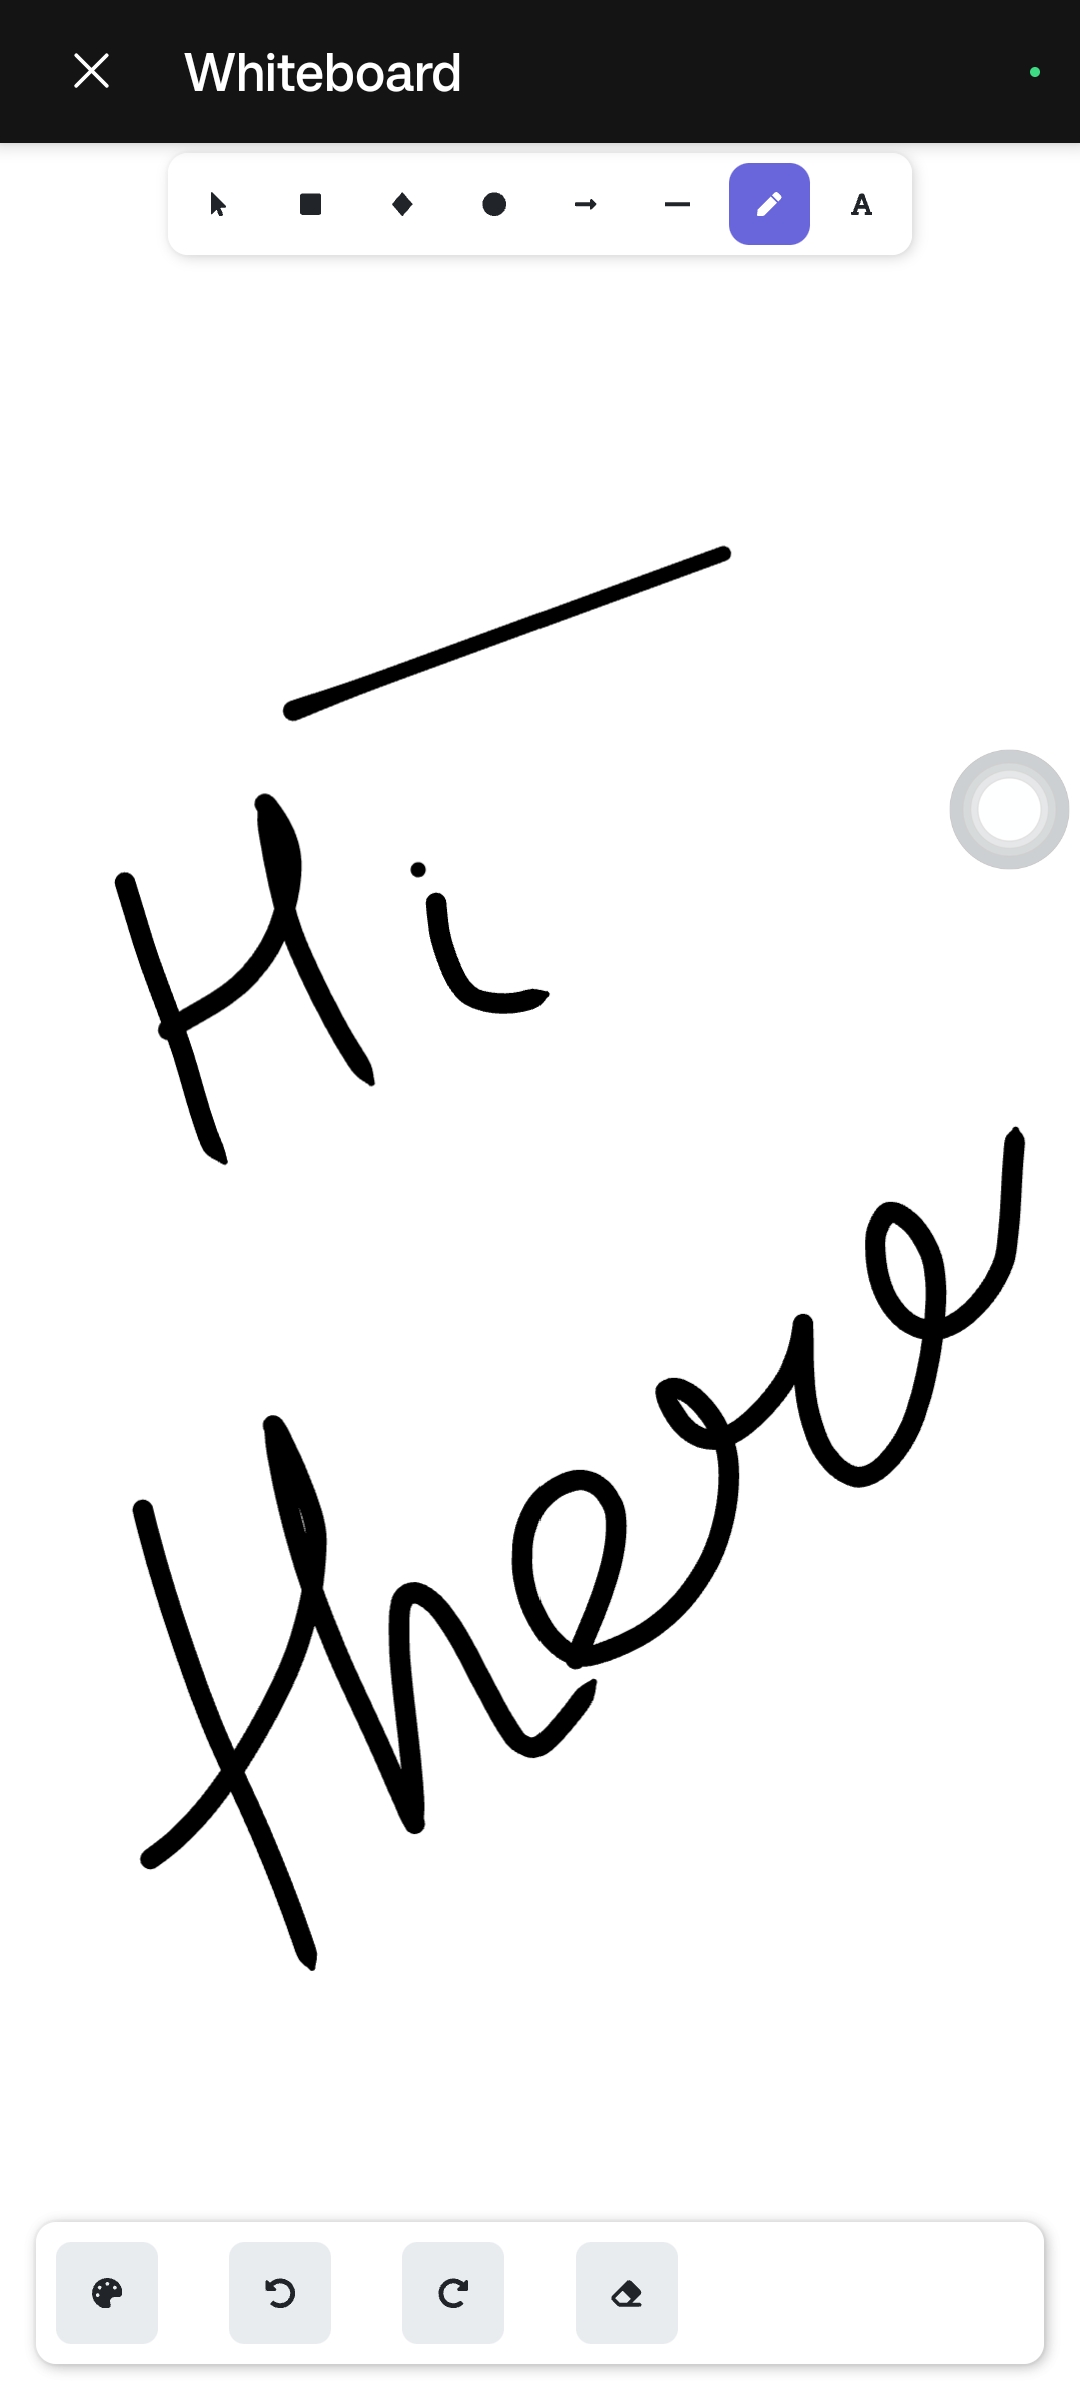 Whiteboard
A
Hi
there